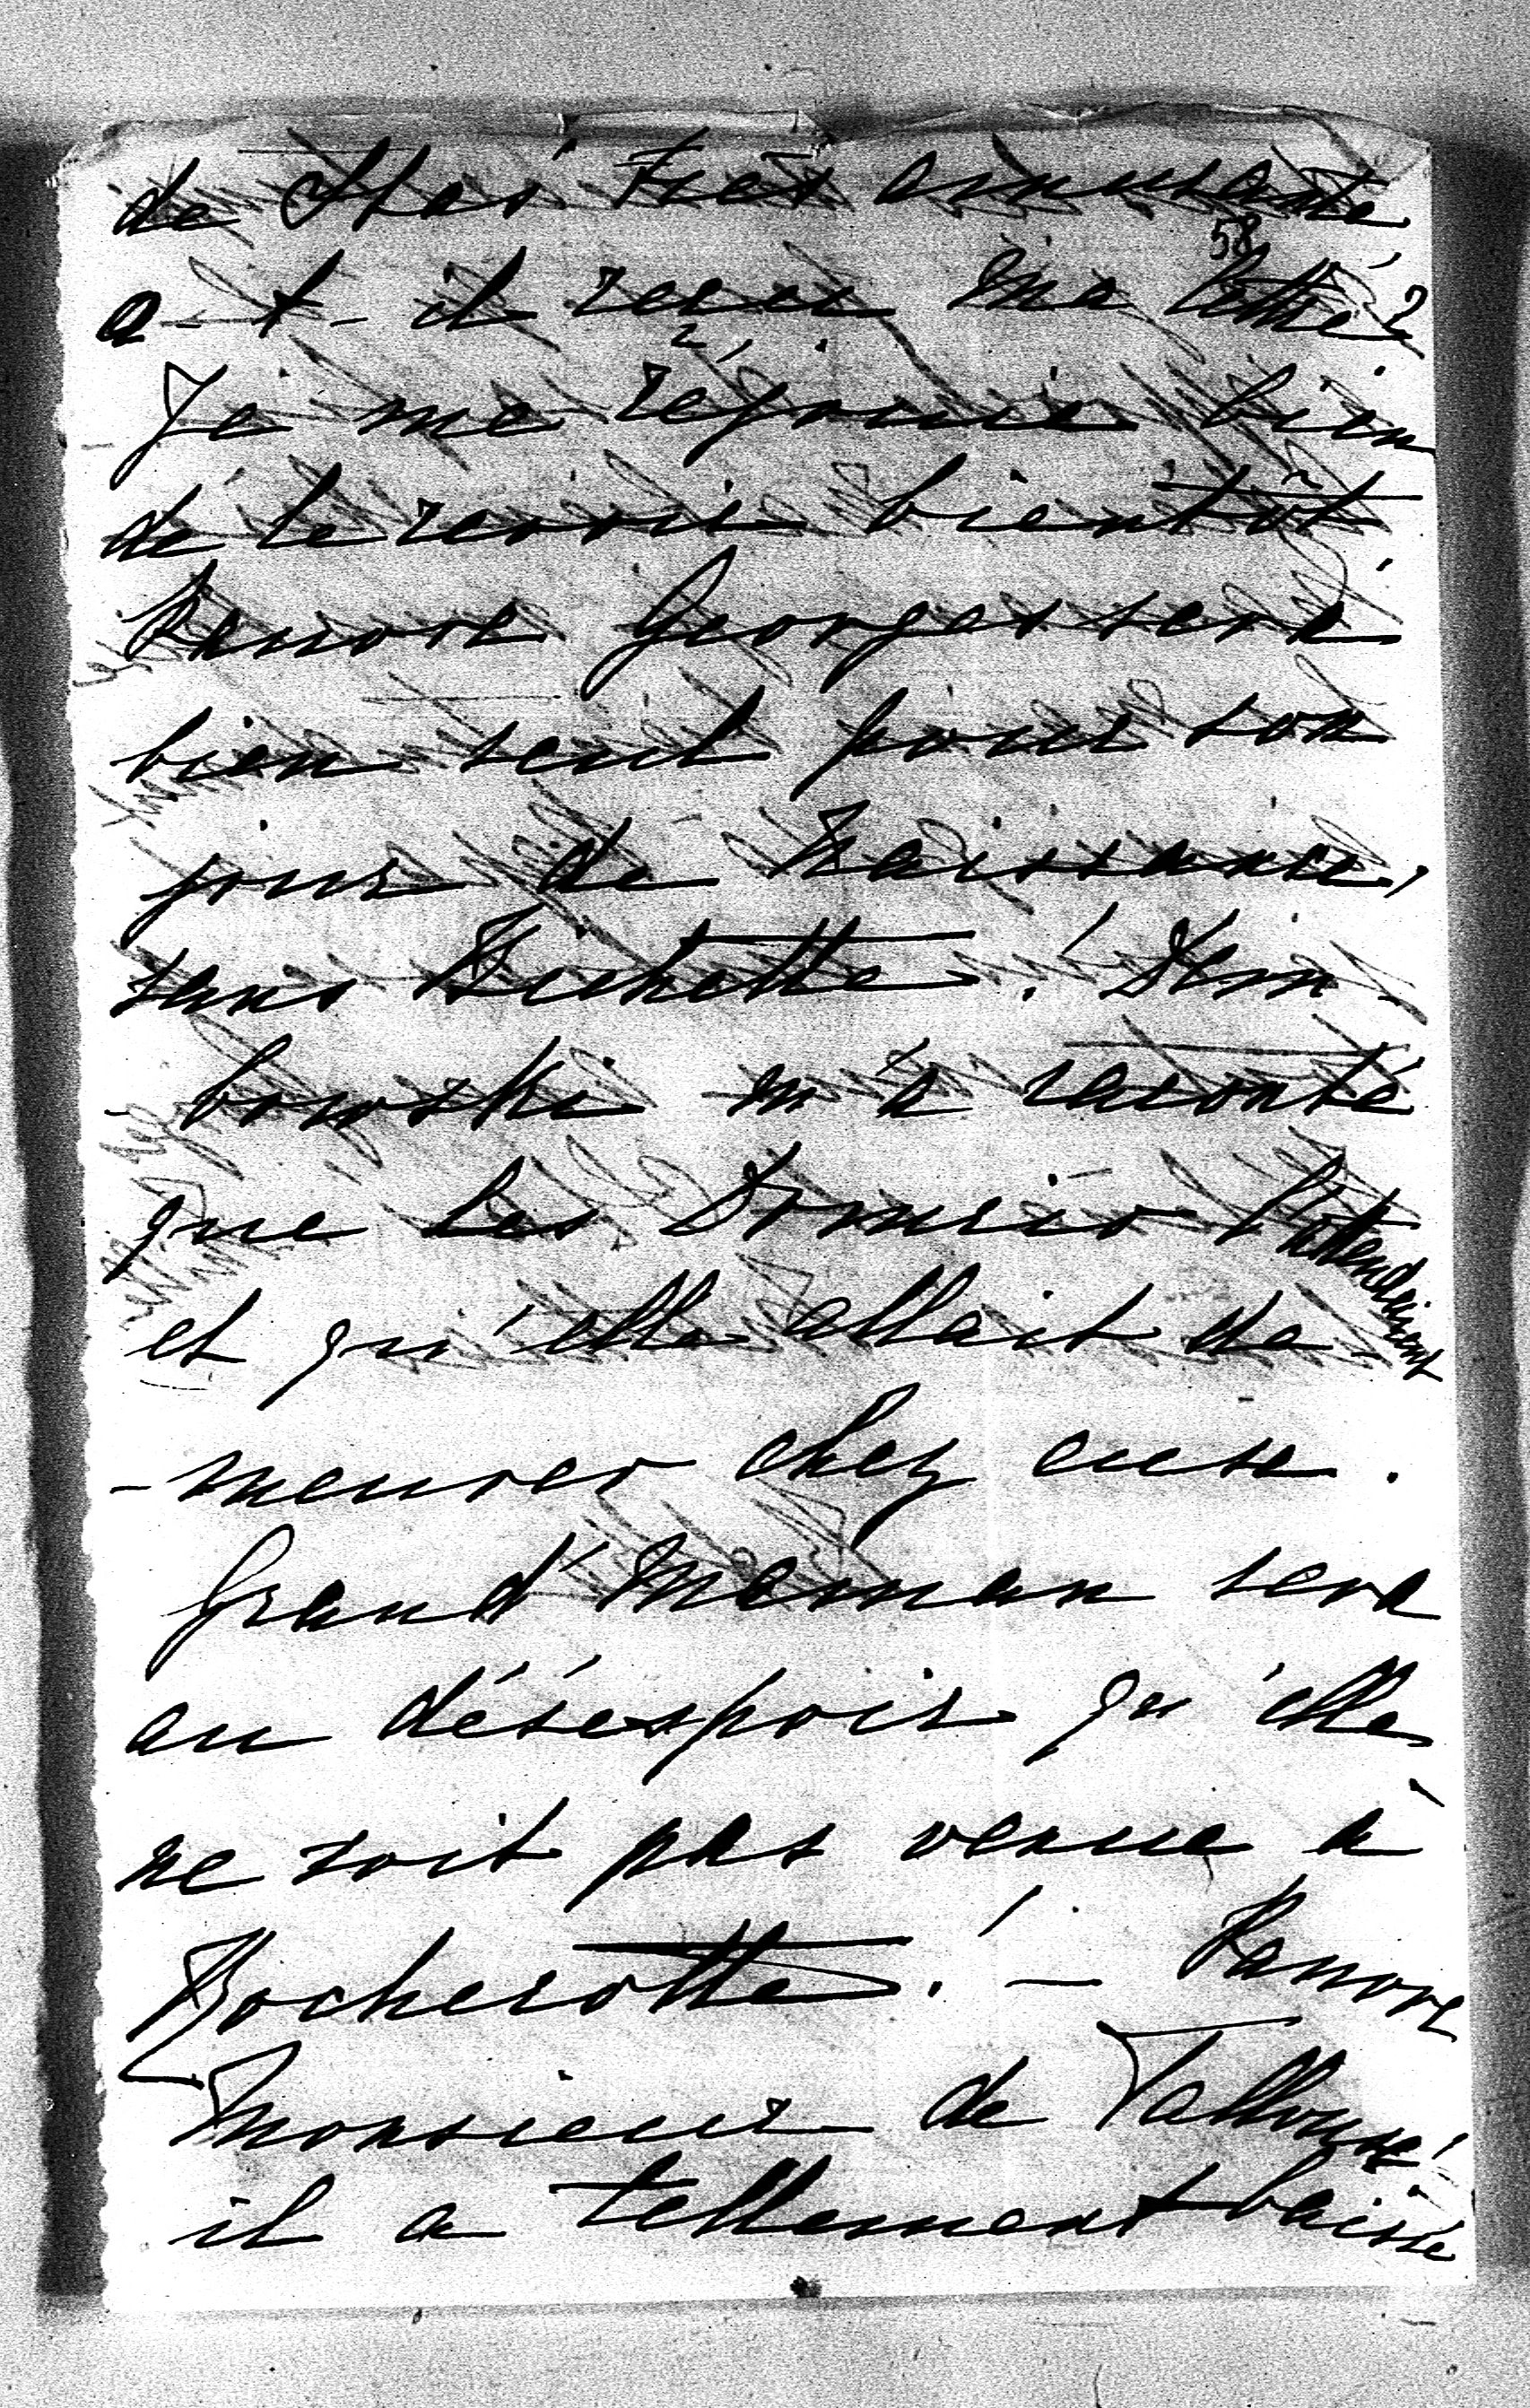 de Stas' très amusante,
58
a-t-il recu ma lettre?
Je me réjouis bien
de le revoir bientôt
Pauvre Georges sera
bien seul pour son
jour de Naissance,
sans Bichette! Dem
- bowski m'a raconté
que les l'attendaient
et qu'elle allait de
- meurer chez eux.
Grand'Maman sera
au désespoir qu'elle
ne soit pas venue à
Bocherotte! - Pauvre
Monsieur de
il a tellement baissé